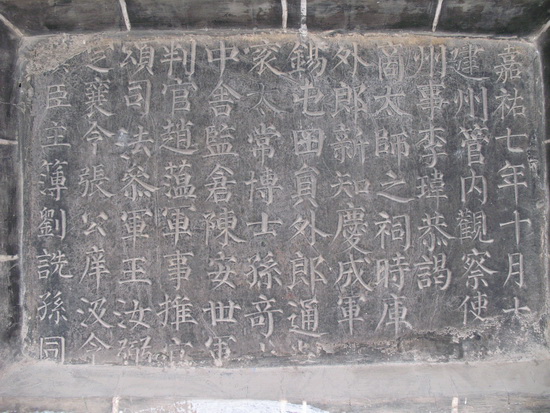 嘉祐七年十月十
建州管內觀察使
州事李瑋恭謁
商太師之祠時庫
外郎新知慶成軍
錫屯田員外郎通
袞太常博士孫奇
中舍監倉陳安世軍
判官趙蘊軍事推官
頌司法叅軍王汝弼
之襄令張公庠汲令
臣主簿劉詵孫同